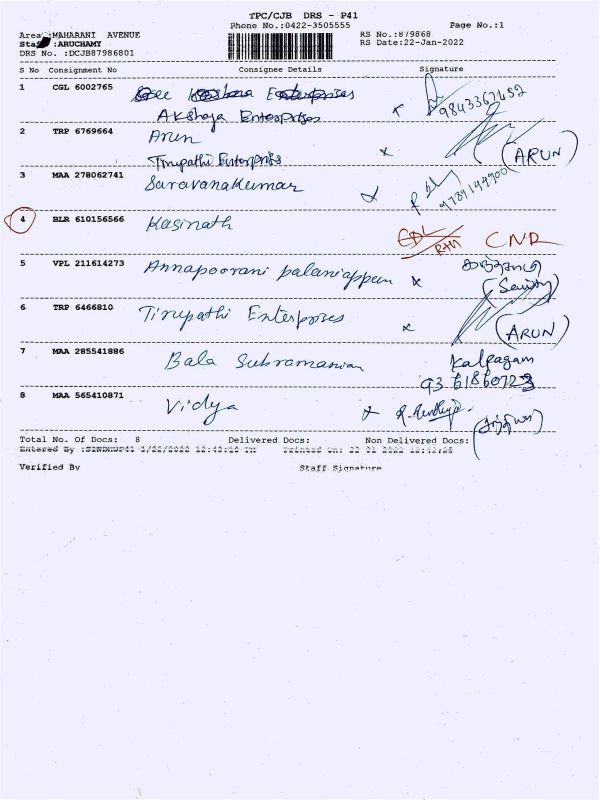 TPC/CJB DRS - P41
Phone No.:0422-3505555 Page No.:1
Area :MAHARANI AVENUE RS No.:879868
:ARUCHAMY RS Date:22-Jan-2022
DRS No. :DCJB87986801
S No Consignment No Consignee Details Signature
1 CGL 6002765 Enterprises
Akshaya Enterprises 9843367652
2 TRP 6769664 Arun
Tirupathi Enterprises x (ARUN)
3 MAA 278062741 Saravanakumar 9789149900
4 BLR 610156566 Kasinath CNR
5 VPL 211614273 Annapoorani palaniappan x
6 TRP 6466810 Tirupathi Enterprises x (ARUN)
7 MAA 285541886 Bala Subramanian Kalpagam
93 61860723
8 MAA 565410871 Vidya x
Total No. Of Docs: 8 Delivered Docs: Non Delivered Docs:
Entered By
Verified By Staff Signature